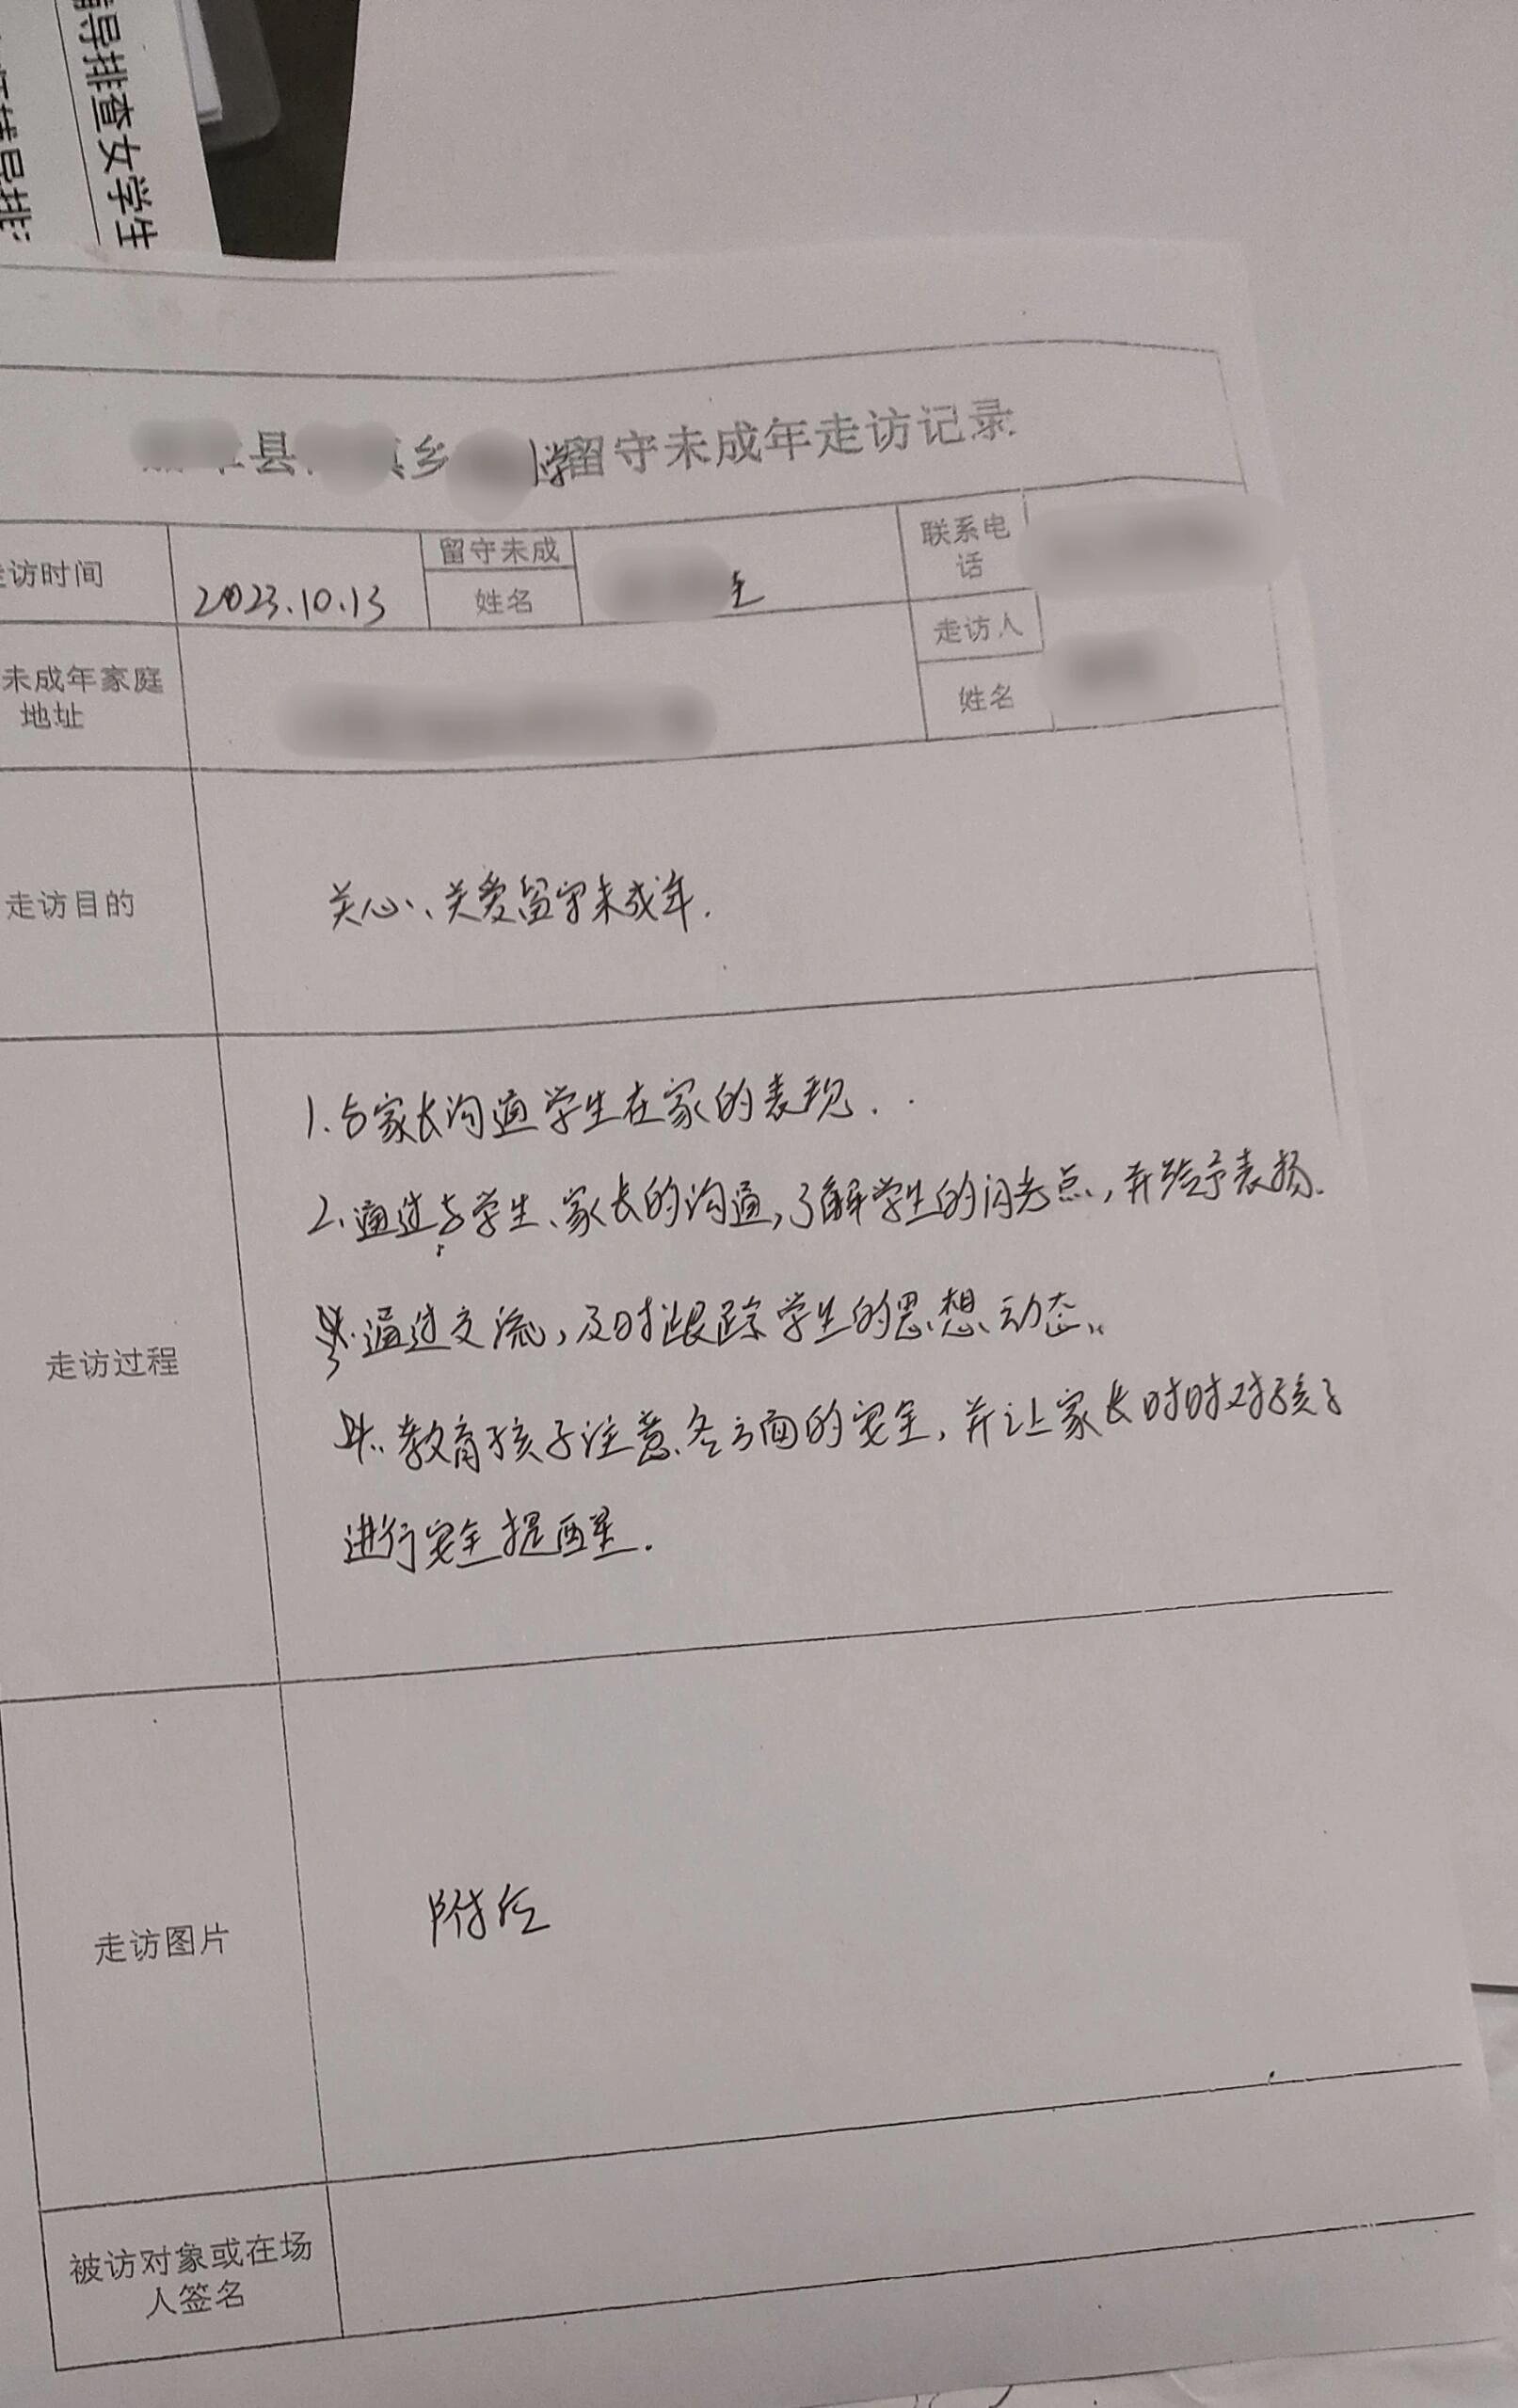 辅导排查女学生
县 乡 学留守未成年走访记录
走访时间
2023.10.13
留守未成
姓名
联系电
话
走访人
姓名
未成年家庭
地址
走访目的
关心、关爱留守未成年.
走访过程
1.与家长沟通学生在家的表现.
2.通过与学生、家长的沟通,了解学生的闪光点,并给予表扬.
3.通过交流,及时跟踪学生的思想动态.
4.教育孩子注意各方面的安全,并让家长时时对孩子
进行安全提醒.
走访图片
附后
被访对象或在场
人签名